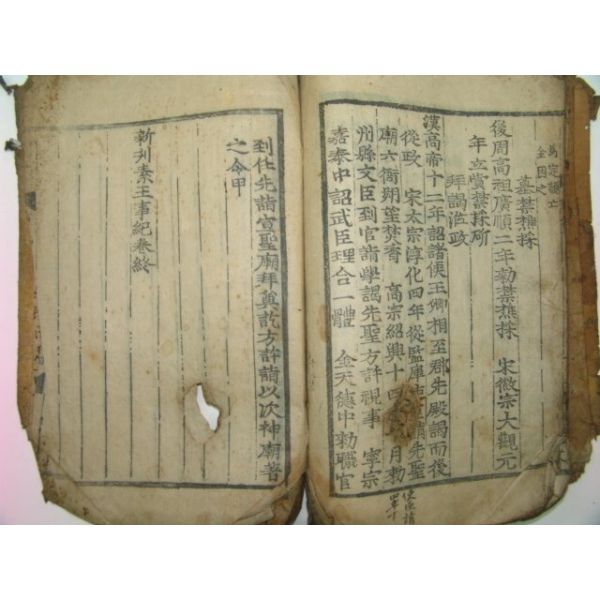 爲定額亡
金因之
墓禁樵採
後周高祖廣順二年勅禁樵採 宋徽宗大觀元
年立賞禁採斫
拜謁涖政
漢高帝十二年詔諸侯王卿相至郡先廟謁而後
從政 宋太宗淳化四年從監庫 請先聖
廟六衙朔望焚香 高宗紹興十四年 月勅
州縣文臣到官詣學謁先聖方許視事 寧宗
嘉泰中詔武臣理合一體 金天德中勅職官
到任先詣宣聖廟拜奠訖方許詣以次神廟著
之令甲
新刋素王事紀卷終